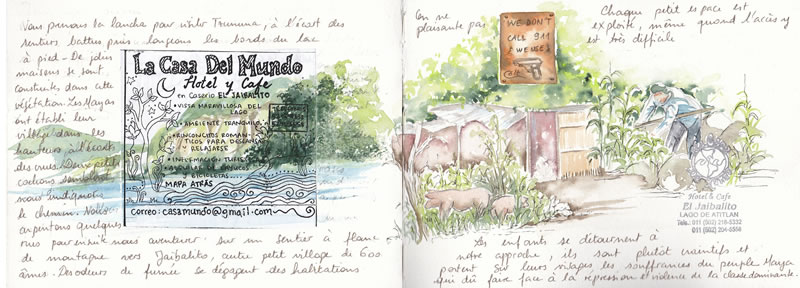 Nous prenons la lancha pour visiter Tzununa, à l'écart des
sentiers battus puis longeons les bords du lac
à pied - De jolies
maisons se sont
construites dans cette
végétation. Les Mayas
ont établi leur
village dans les
hauteurs à l'écart
des crues. Deux petits
cochons semblent
nous indiquer
le chemin. Nous
arpentons quelques
rues pour ensuite nous aventurer sur un sentier à flanc
de montagne vers Jaibalito, autre petit village de 600
âmes. Des odeurs de fumée se dégagent des habitations
La Casa Del Mundo
Hotel y Cafe
en Caserio EL JAIBALITO
• VISTA MARAVILLOSA DEL
LAGO
• AMBIENTE TRANQUILO
• RINCONCITOS ROMAN-
TICOS PARA DESCANSAR
Y RELAJARSE
• INFORMACION TURISTICA
Y BICICLETAS....
MAPA ATRÁS
correo: casamundo@gmail.com
On ne
plaisante pas
WE DON'T
CALL 911
WE USE
Chaque petit espace est
exploité, même quand l'accès y
est très difficile
Hotel & Cafe
El Jaibalito
LAGO DE ATITLAN
Tels.: 011 (502) 218-5332
011 (502) 204-5558
Les enfants se détournent à
notre approche, ils sont plutôt craintifs et
portent sur leurs visages les souffrances du peuple Maya
qui dû faire face à la répression et violence de la classe dominante.